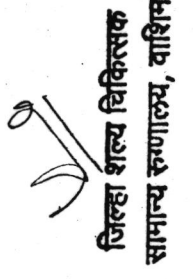 जिल्हा शल्य चिकित्सक
सामान्य रुग्णालय, वाशिम